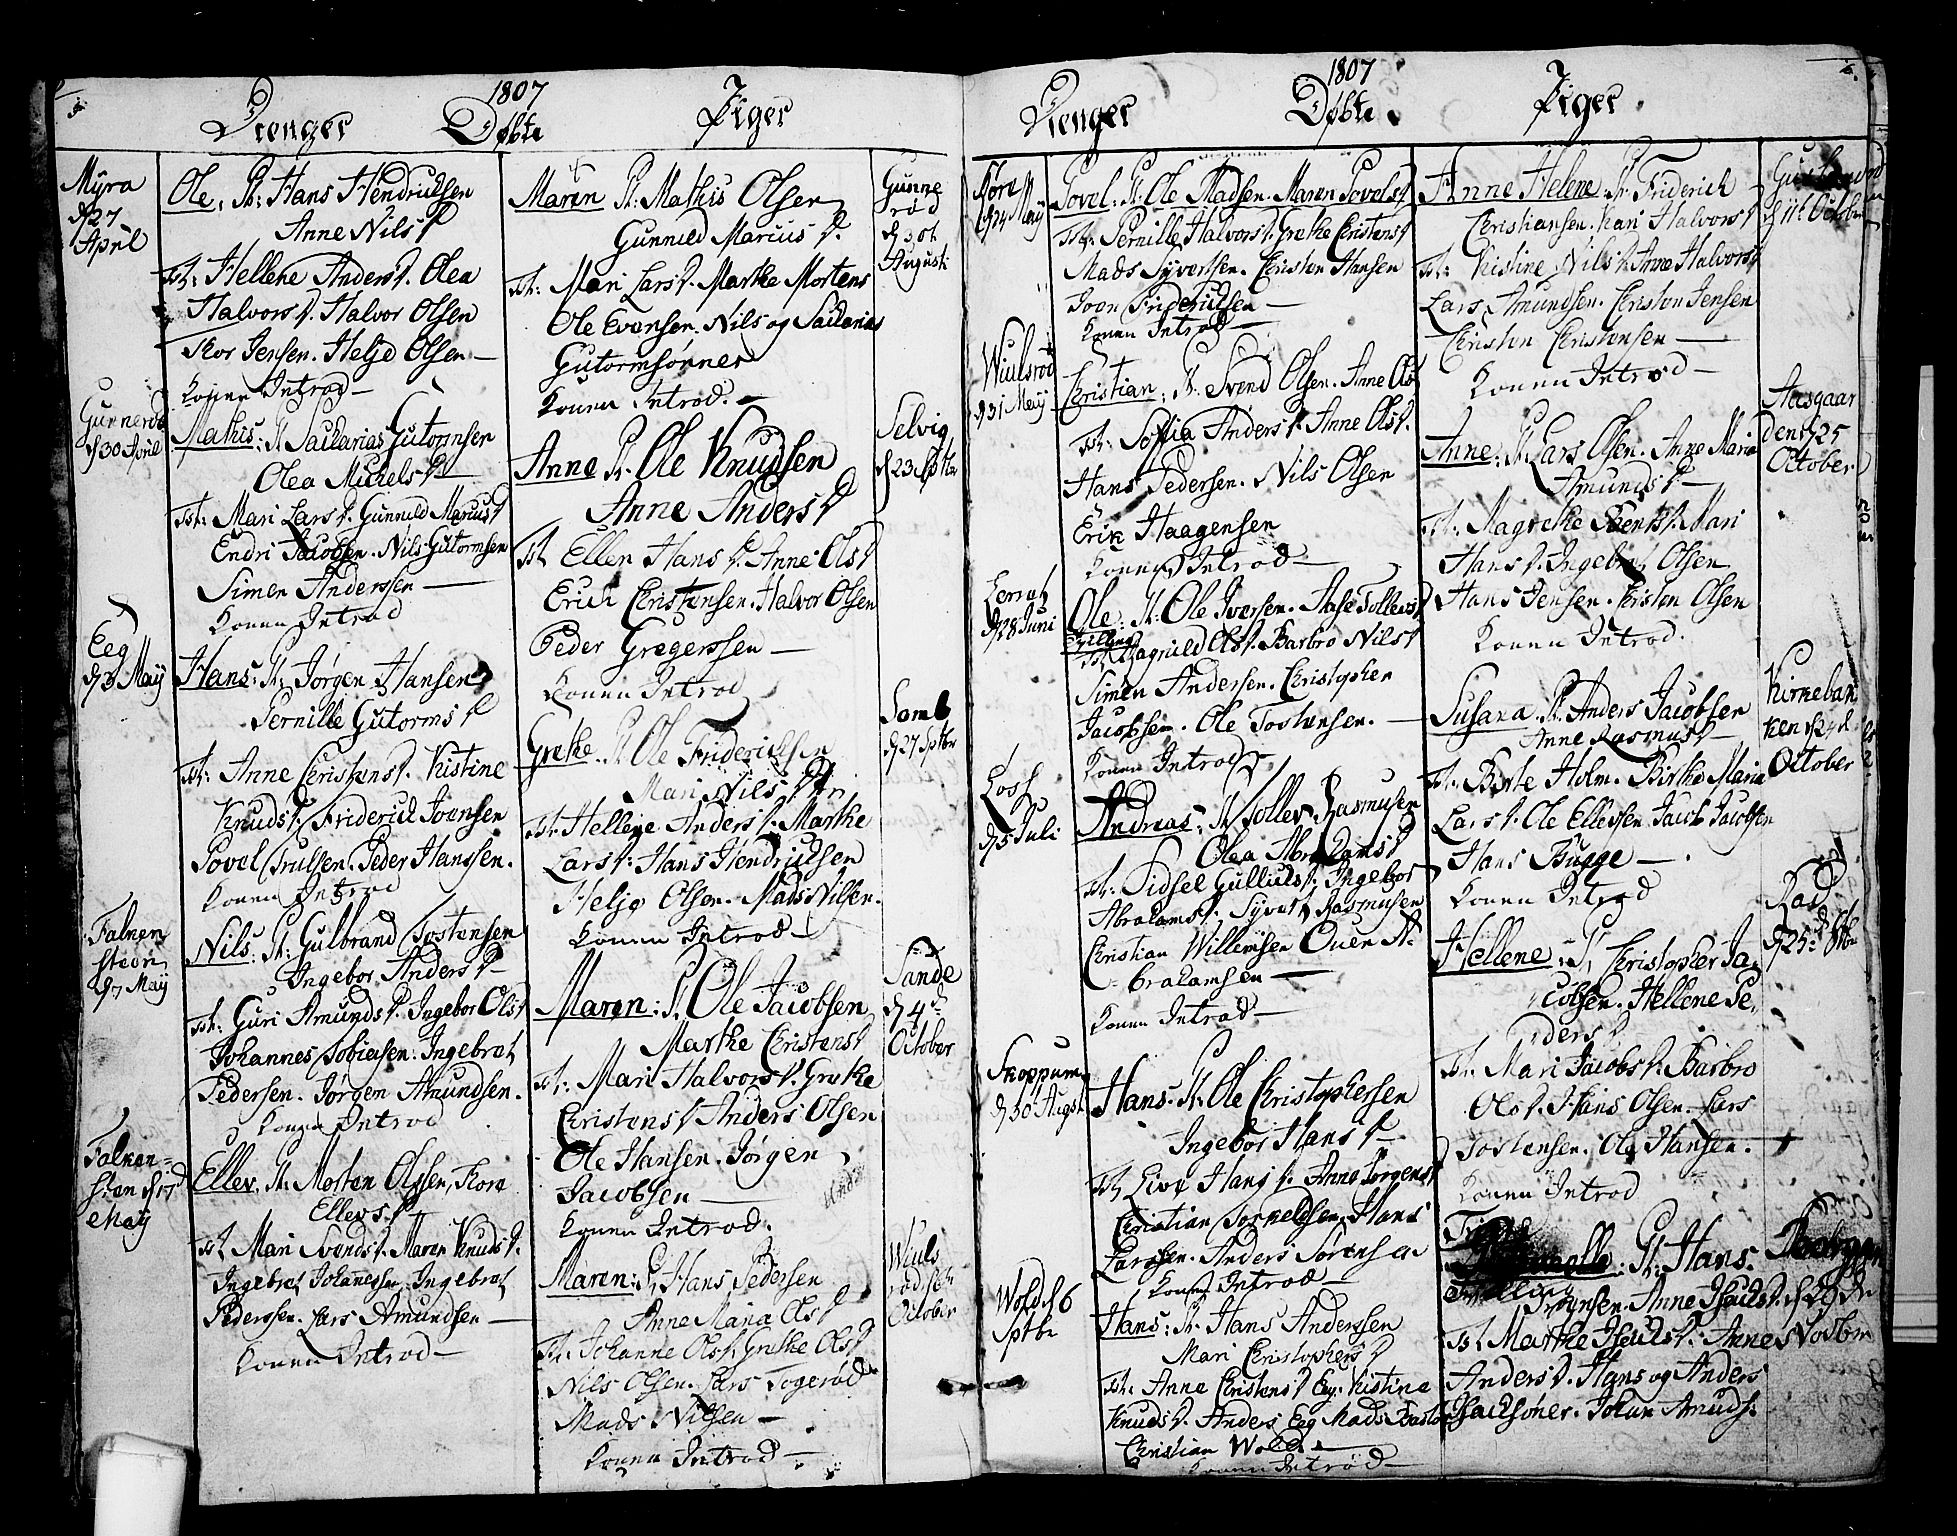 1807
Drenger Døbte Piger
Myra
d 27
April
Ole, Pt: Hans Hendricksen
Anne Nilsd
Tst: Hellene Andersd. Olea
Halvorsd. Halvor Olsen
Thor Jensen. Helje Olsen
Konen Introd
Gunnerød
d 30 April
Mathis: Pt Sacharias Gutormsen
Olea Michelsd
Tst: Mari Larsd. Gunnild Mariusd
Endri Jacobsen. Nils Gutormsen
Simen Anderssen
Konen Introd
Eeg
d 3 Maÿ
Hans: Pt: Jørgen Hansen
Pernille Gutormsd
Tst: Anne Christensd. Kistine
Knudsd. Friderich Ivensen
Povel Trulsen. Peder Hanssen.
Konen Introd
Falken
steen
d 7 Maÿ
Nils: Pt: Gulbrand Tostensen
Ingebor Andersd
Tst: Guri Amundsd. Ingebor Olsd
Johannes Tobiassen: Ingebret
Pedersen. Jørgen Amundsen.
Konen Introd
Falken=
sten d 17d
Maÿ
Ellev. Pt. Morten Olssen, Flore
Ellevsd
Tst Mari Svendsd. Maren Knudsd.
Ingebret Johannessen. Ingebret
Pederssen. Lars Amundsen
Konen Introd
Maren Pt. Mathis Olsen
Gunnild Marius d.
Tst: Mari Larsd. Marthe Mortens
Ole Evensen. Nils og Sacharias
Gutormsønner
Konen Introd.
Gunne
rød
d 30t
Augusti
Anne Pt. Ole Knudsen
Anne Andersd
Tst Ellen Hansd. Anne Olsd
Erich Christensen. Halvor Olsen
Peder Gregerssen
Konen Introd
Selvig
d 23 Sptbr
Grethe. Pt Ole Friderichsen
Mari Nilsd
Tst: Hellene Andersd. Marthe
Larsd. Hans Hendrichsen
Helje Olsen. Mads Nilsen.
Konen Introd
Somb
d 27 Sptbr
Maren: Pt. Ole Jacobsen
Marthe Christensd
Tst: Mari Halvorsd. Grethe
Christensd Anders Olsen
Ole Hansen. Jørgen
Jacobsen
Konen Introd.
Sande
d 4de
October
Maren: Pt. Hans Pedersen
Anne Maria Olsd
Tst: Johanne Olsd. Grethe Olsd
Nils Olsen. Lars Togerød
Mads Nilsen
Konen Introd
Wiuls
October
1807
Drenger Døbte. Piger
d 24 Maÿ
Povel: Pt. Ole Madsen. Maren Povelsd
Tst. Pernille Halvorsd. Grethe Christensd
Mads Syvertsen. Christen Hansen
Iver Friderichsen
Konen Introd
Wiulsrød
d 31 Maÿ
Christian; Pt. Svend Olsen. Anne Olsd
Tst: Sophia Andersd. Anne Olsd.
Hans Pedersen. Nils Olsen
Erik Haagensen
Konen Introd
d 28 Juni
Ole: Pt: Ole Iversen. Aase Tollevsd
Tvilling
Tst Dagnild Olsd. Barbro Nilsd
Simen Andersen. Christopher
Jacobsen. Ole Tostensen.
Konen Introd
d 5 Juli
Andreas: Pt Tollev Rasmusen
Olea Abrahamsd
Tst: Sidsel Gulliulsd. Ingebor
Abrahamsd. Syvert Rasmusen
Christian Willemsen Ouen A=
brahamsen
Konen Introd
Skoppum
d 30 Augst
Hans. Pt. Ole Christophersen
Ingebor Hansd
Tst Live Hansd. Anne Jørgensd
Christian Torkeldsen. Hans
Larssen. Anders Sørensen
Konen Introd
Wold d 6
Sptbr
Hans: Pt. Hans Anderssen
Mari Christophersd
Tst: Anne Christensd Eeg. Kistine
Knudsd. Anders Eeg Mads Bastø
Christian Wold
Konen Introd
Anne Helene Pt. Friderich
Christiansen. Kari Halvorsd
Tst: Kistine Nilsd. Anne Halvorsd
Lars Amundsen. Christen Jensen
Christen Christensen
Konen Introd
d 11t October
Anne: Pt. Lars Olsen. Anne Maria
Amundsd
Tst: Magrethe Bentsd. Mari
Hansd. Ingebret Olsen
Hans Jensen. Christen Olsen
Konen Introd.
Aasgaar
den d 25
October
Susana. Pt. Anders Jacobsen
Anne Rasmusd
Tst: Birte Holm. Birthe Maria
Larsd. Ole Ellevsen Jacob Jacobsen
Hans Bugge
Konen Introd
Kirkebak
ken d 24d
October
Hellene: Pt. Christopher Ja=
cobsen. Hellene Pe=
dersd
Tst: Mari Jacobsd. Barbro
Olsd. Hans Olsen. Lars
Tostensen. Ole Hansen.
Konen Introd
Rød
d 25
Pt: Hans.
Tvilling
Anne Isachsd. d 29de
Tst Marthe Isachsd. Anne Novbr
Andersd. Hans og Anders
Isachsøner. Johan Amunds.